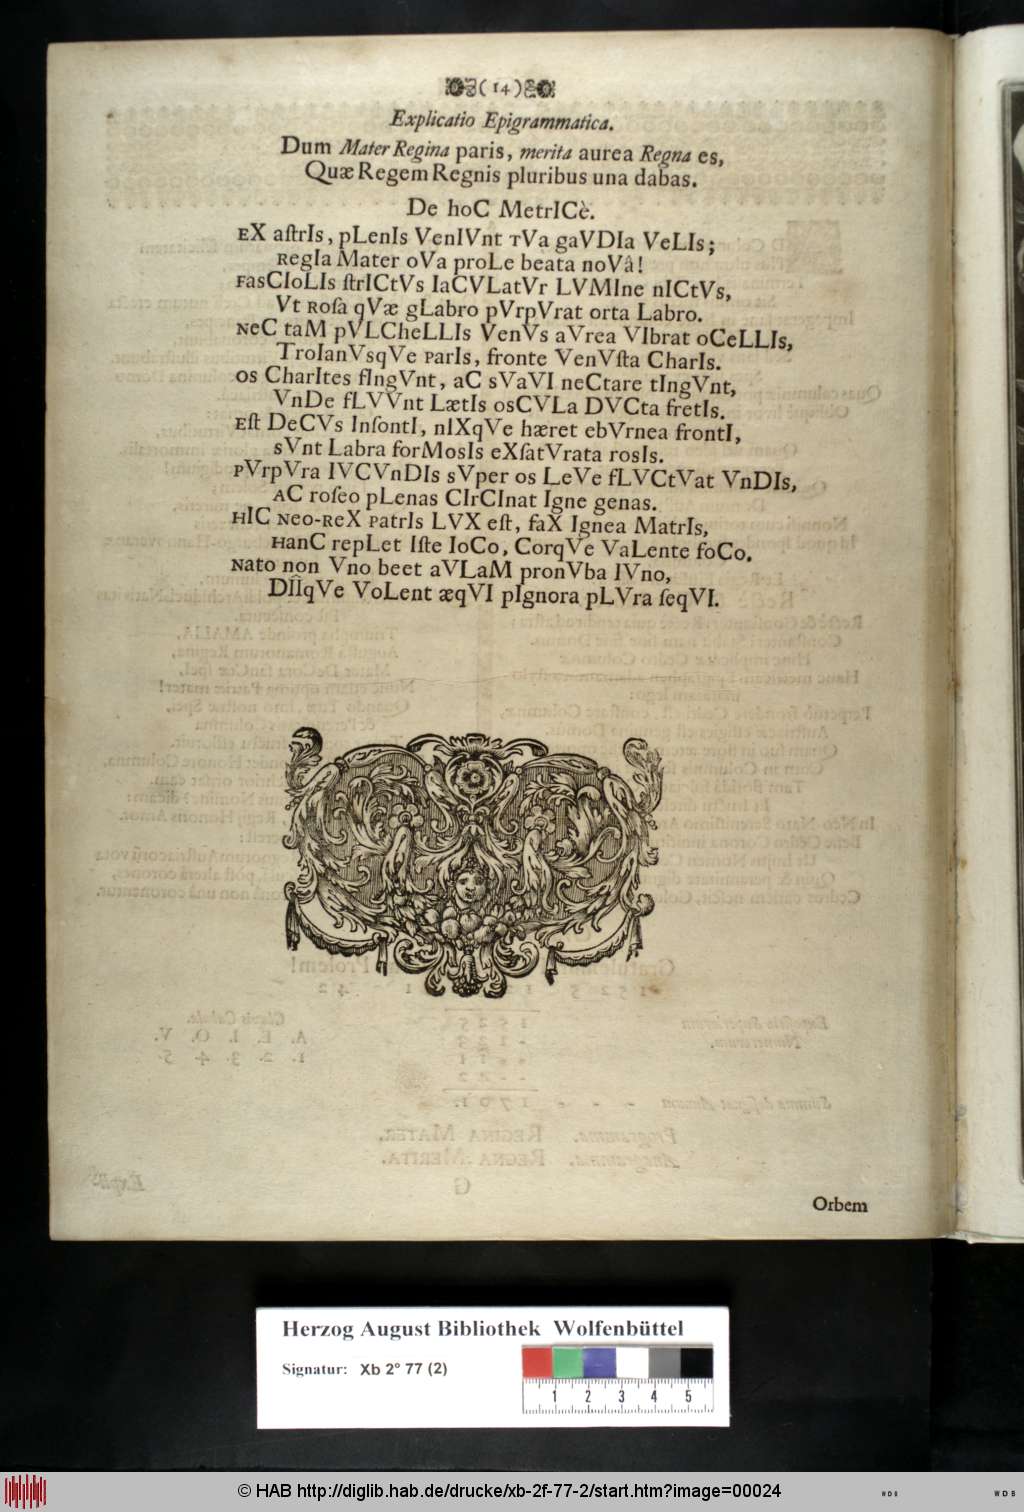 (14)
Explicatio Epigrammatica.
Dum Mater Regina paris, merita aurea Regna es,
Quæ Regem Regnis pluribus una dabas.
De hoC MetrICè.
EX aſtrIs, pLenIs VenIVnt TVa gaVDIa VeLIs;
RegIa Mater oVa proLe beata noVâ!
FasCIoLIs ſtrICtVs IaCVLatVr LVMIne nICtVs,
Vt Roſa qVæ gLabro pVrpVrat orta Labro.
NeC taM pVLCheLLIs VenVs aVrea VIbrat oCeLLIs,
TroIanVsqVe ParIs, fronte VenVſta CharIs.
Os CharItes fIngVnt, aC sVaVI neCtare tIngVnt,
VnDe fLVVnt LætIs osCVLa DVCta fretIs.
Eſt DeCVs InſontI, nIXqVe hæret ebVrnea frontI,
sVnt Labra forMosIs eXſatVrata rosIs.
PVrpVra IVCVnDIs sVper os LeVe fLVCtVat VnDIs,
AC roſeo pLenas CIrCInat Igne genas.
HIC Neo-ReX PatrIs LVX eſt, faX Ignea MatrIs,
HanC repLet Iſte IoCo, CorqVe VaLente foCo.
Nato non Vno beet aVLaM pronVba IVno,
DIÎqVe VoLent æqVI pIgnora pLVra ſeqVI.
Orbem
Herzog August Bibliothek Wolfenbüttel
Signatur: Xb 2° 77 (2)
1 2 3 4 5
© HAB http://diglib.hab.de/drucke/xb-2f-77-2/start.htm?image=00024